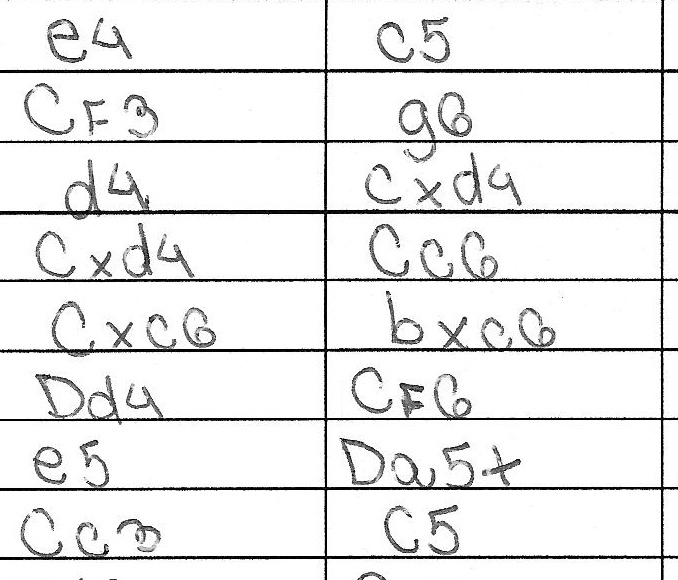 e4 c5
CF3 g6
d4 cxd4
Cxd4 Cc6
Cxc6 bxc6
Dd4 CF6
e5 Da5+
Cc3 C5